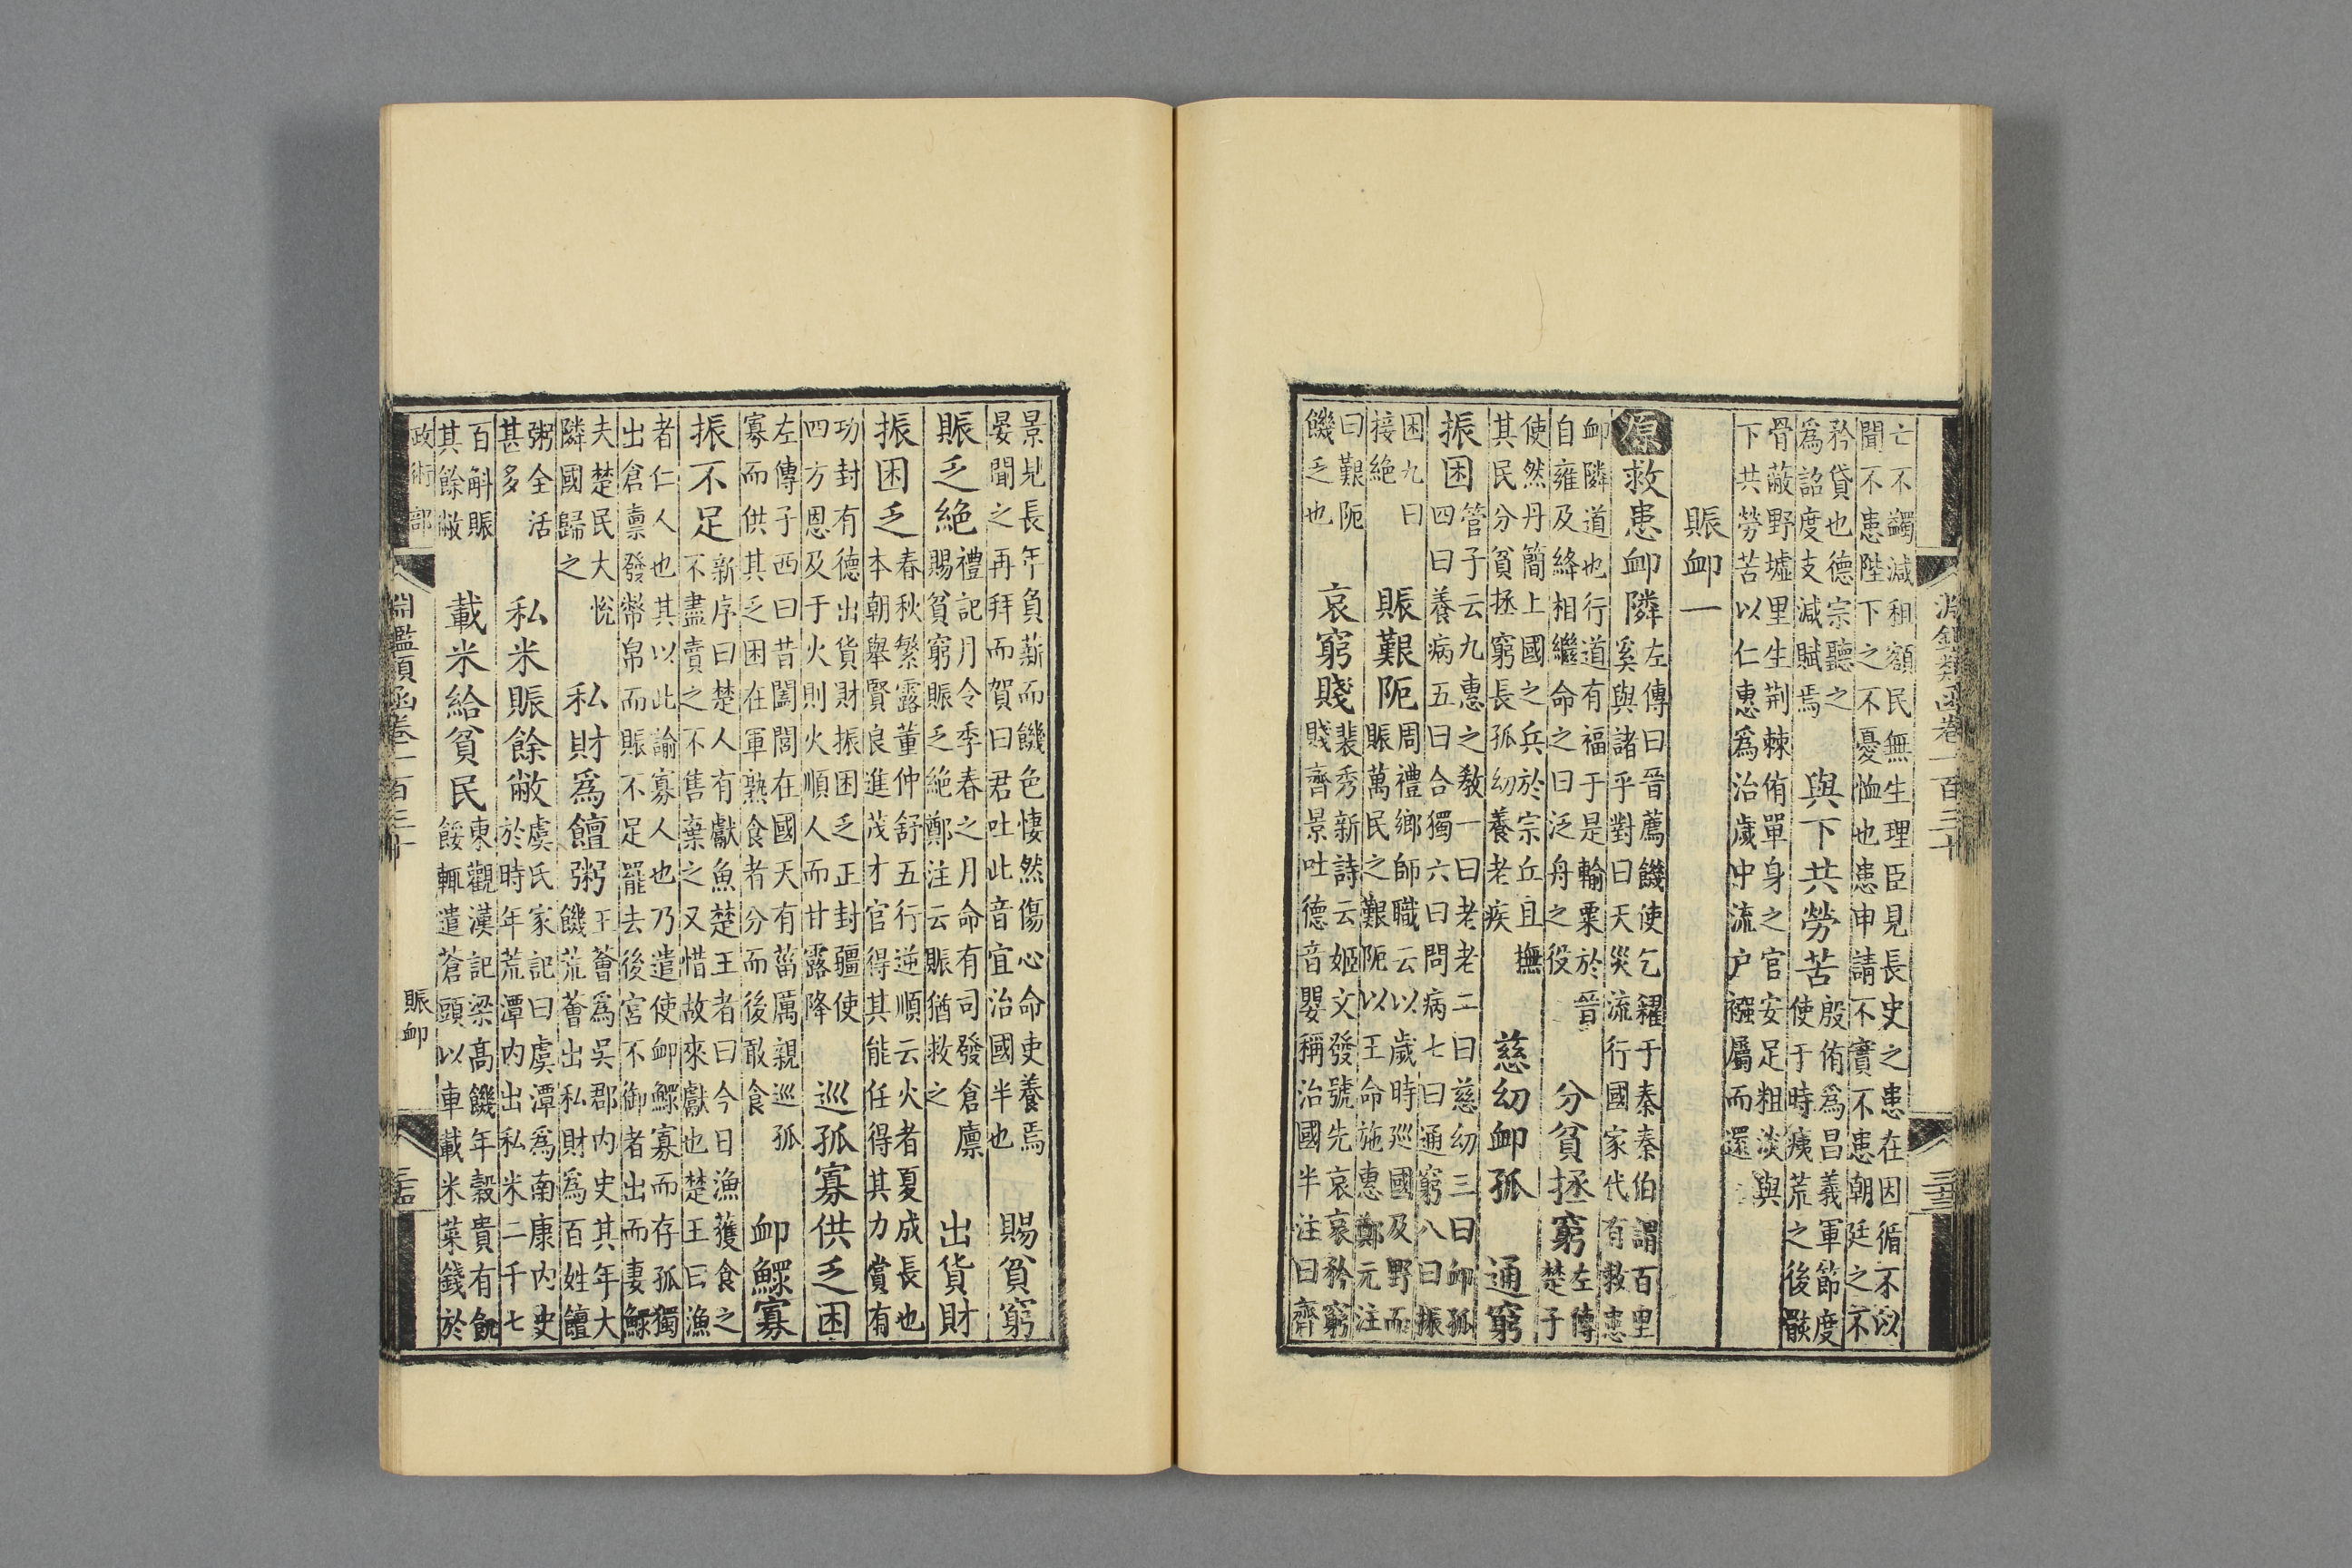 淵鑑類函卷一百三十
三十三
亡不蠲減租額民無生理臣見長史之患在因循不以
聞不患陛下之不憂恤也患申請不實不患朝廷之不
矜貸也德宗聽之
為詔度支減賦焉
與下共勞苦
殷侑為昌義軍節度
使于時痍荒之後骸
骨蔽野墟里生荆棘侑單身之官安足粗淡與
下共勞苦以仁惠為治歲中流户襁屬而還
賑卹一
原
救患卹隣
左傳曰晉薦饑使乞糴于秦秦伯謂百里
奚與諸乎對曰天災流行國家代有救患
卹隣道也行道有福于是輸粟於晉
自雍及絳相繼命之曰泛舟之役
分貧拯窮
左傳
楚子
使然丹簡上國之兵於宗丘且撫
其民分貧拯窮長孤幼養老疾
慈幼卹孤
通窮
振困
管子云九惠之教一曰老老二曰慈幼三曰卹孤
四曰養病五曰合獨六曰問病七曰通窮八曰振
困九曰
接絶
賑艱阨
周禮鄉師職云以歲時巡國及野而
賑萬民之艱阨以王命施惠鄭元注
曰艱阨
饑乏也
哀窮賤
裴秀新詩云姬文發號先哀哀矜窮
賤齊景吐德音嬰稱治國半注曰齊
景見長年負薪而饑色悽然傷心命吏養焉
晏聞之再拜而賀曰君吐此音宜治國半也
賜貧窮
賑乏絶
禮記月令季春之月命有司發倉廪
賜貧窮賑乏絶鄭注云賑猶救之
出貨財
振困乏
春秋繁露董仲舒五行逆順云火者夏成長也
本朝舉賢良進茂才官得其能任得其力賞有
功封有德出貨財振困乏正封疆使
四方恩及于火則火順人而甘露降
巡孤寡供乏困
左傳子西曰昔闔閭在國天有菑厲親巡孤
寡而供其乏困在軍熟食者分而後敢食
卹鰥寡
振不足
新序曰楚人有獻魚楚王者曰今日漁獲食之
不盡賣之不售棄之又惜故來獻也楚王曰漁
者仁人也其以此諭寡人也乃遣使卹鰥寡而存孤獨
出倉禀發幣帛而賑不足罷去後宮不御者出而妻鰥
夫楚民大悅
隣國歸之
私財為饘粥
王薈為吳郡内史其年大
饑荒薈出私財為百姓饘
粥全活
甚多
私米賑餘敝
虞氏家記曰虞潭為南康内史
於時年荒潭内出私米二千七
百斛賑
其餘敝
載米給貧民
東觀漢記梁髙饑年穀貴有餽
餒輒遣蒼頭以車載米菜錢於
政術部
淵鑑類函卷一百三十
賑卹
三十四